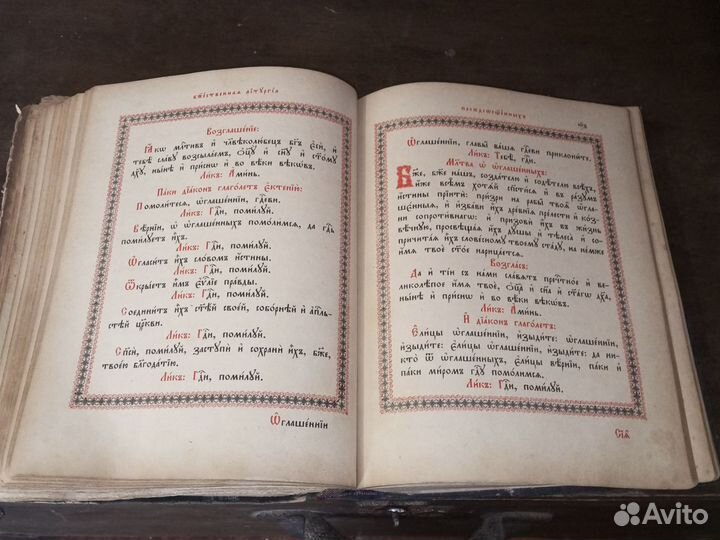 бж҃е́ственнаѧ лїтꙋргі́ѧ
Возглаше́нїе:
Ꙗ҆́кѡ млⷭ҇тивъ и҆ чл҃вѣколю́бецъ бг҃ъ є҆сѝ, и҆
тебѣ̀ сла́вꙋ возсыла́емъ, ѻ҆ц҃ꙋ̀ и҆ сн҃ꙋ и҆ ст҃о́мꙋ
дх҃ꙋ, ны́нѣ и҆ при́снѡ и҆ во вѣ́ки вѣкѡ́въ.
Ли́къ: А҆ми́нь.
Па́ки дїа́конъ глаго́летъ є҆ктенїѝ:
Помоли́тесѧ, ѡ҆глаше́ннїи, гдⷭ҇еви.
Ли́къ: Гдⷭ҇и, поми́лꙋй.
Вѣ́рнїи, ѡ҆ ѡ҆глаше́нныхъ помо́лимсѧ, да гдⷭ҇ь
поми́лꙋетъ и҆̀хъ.
Ли́къ: Гдⷭ҇и, поми́лꙋй.
Ѡ҆гласи́тъ и҆̀хъ сло́вомъ и҆́стины.
Ли́къ: Гдⷭ҇и, поми́лꙋй.
Ѿкры́етъ и҆̀мъ є҆ѵⷢ҇лїе пра́вды.
Ли́къ: Гдⷭ҇и, поми́лꙋй.
Соедини́тъ и҆̀хъ ст҃ѣ́й свое́й, собо́рнѣй и҆ а҆пⷭ҇ль-
стѣй цр҃кви.
Ли́къ: Гдⷭ҇и, поми́лꙋй.
Сп҃сѝ, поми́лꙋй, застꙋпѝ и҆ сохранѝ и҆̀хъ, бж҃е,
твое́ю блгⷣа́тїю.
Ли́къ: Гдⷭ҇и, поми́лꙋй.
Ѡ҆глаше́ннїи
преждеѡсщ҃е́нныхъ
Ѡ҆глаше́ннїи, главы̑ ва́шѧ гдⷭ҇еви приклони́те.
Ли́къ: Тебѣ̀, гдⷭ҇и.
Мл҃тва ѡ҆ ѡ҆глаше́нныхъ:
Бж҃е, бж҃е на́шъ, созда́телю и҆ содѣ́телю всѣ́хъ,
и҆́же всѣ̑мъ хотѧ́й спⷭ҇ти́сѧ и҆ въ ра́зꙋмъ
и҆́стины прїитѝ: при́зри на рабы̑ твоѧ̑ ѡ҆гла-
ше́нныѧ, и҆ и҆зба́ви и҆̀хъ дре́внїѧ пре́лести и҆ ко́з-
ни сопроти́внагѡ: и҆ призовѝ и҆̀хъ въ жи́знь
вѣ́чнꙋю, просвѣща́ѧ и҆́хъ дꙋ́шы и҆ тѣлеса̀ и҆ со-
причита́ѧ и҆̀хъ слове́сномꙋ твоемꙋ̀ ста́дꙋ, на не́мже
и҆́мѧ твоѐ ст҃о́е нарица́етсѧ.
Возгла́съ:
Да и҆ ті́и съ на́ми сла́вѧтъ пречⷭ҇тно́е и҆ ве-
ликолѣ́пое и҆́мѧ твоѐ, ѻ҆ц҃а̀ и҆ сн҃а и҆ ст҃а́гѡ дх҃а,
ны́нѣ и҆ при́снѡ и҆ во вѣ́ки вѣкѡ́въ.
Ли́къ: А҆ми́нь.
И҆ дїа́конъ глаго́летъ:
Є҆ли́цы ѡ҆глаше́ннїи, и҆зыди́те: ѡ҆глаше́ннїи,
и҆зыди́те: є҆ли́цы ѡ҆глаше́ннїи, и҆зыди́те: да ни-
кто̀ ѿ ѡ҆глаше́нныхъ, є҆ли́цы вѣ́рнїи, па́ки и҆
па́ки ми́ромъ гдⷭ҇ꙋ помо́лимсѧ.
Ли́къ: Гдⷭ҇и, поми́лꙋй.
Сїѧ̑
Avito